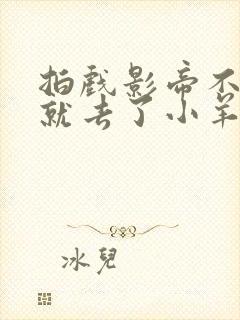 拍戏影帝不
就去了小羊
冰兒